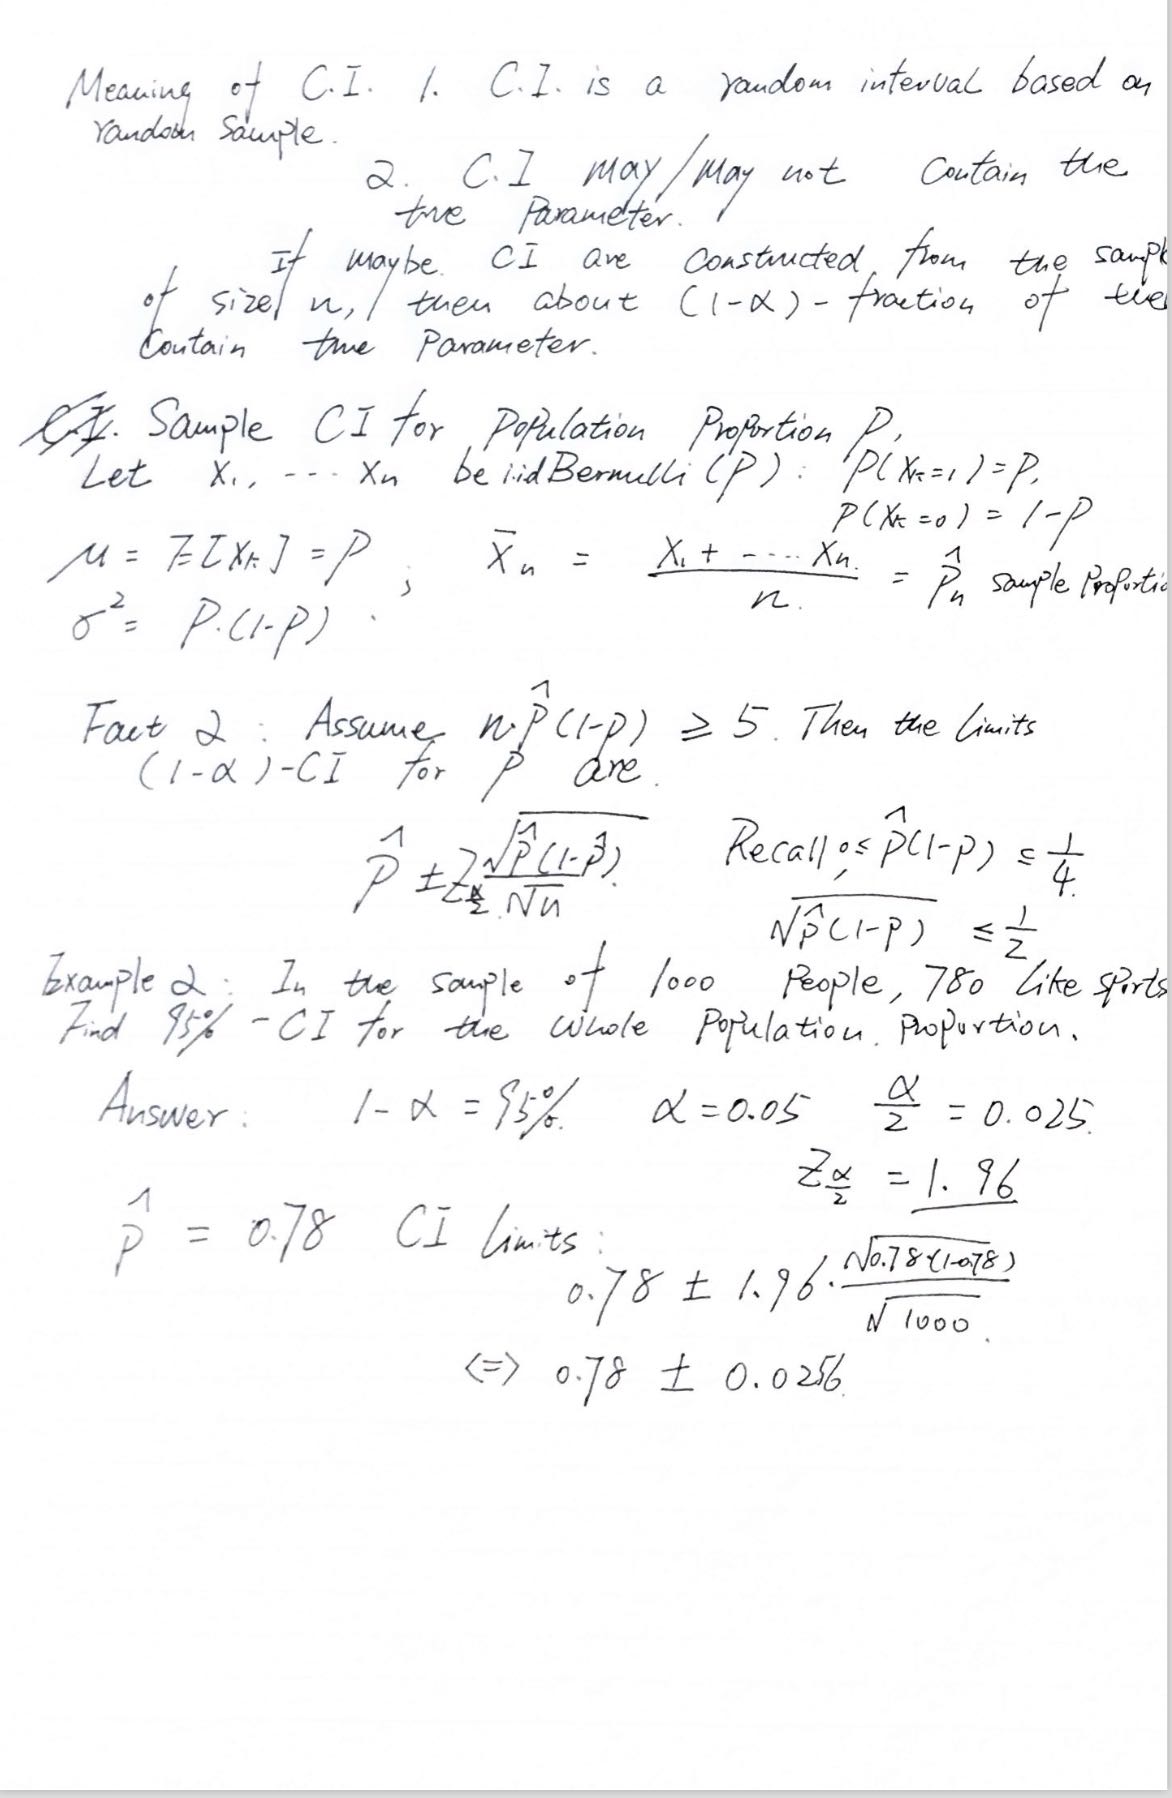 Meaning of C.I. 1. C.I. is a random interval based on
random sample.
2. C.I may/may not contain the
true Parameter.
If maybe CI are constructed from the sampl
of size n, then about (1-α)-fraction of
Contain true Parameter.
CI. Sample CI for Population Proportion P.
Let X₁, ---- Xn be iid Bernulli (P): P(Xk=1)=P,
P(Xk=0) = 1-P
μ = E[Xk] = P ; X̄n = (X₁ + ---- Xn)/n. = P̂n sample Proportio
σ² = P.(1-P).
Fact 2: Assume n·p̂(1-p) ≥ 5. Then the limits
(1-α)-CI for p are.
p̂ ± Zα/2 √(p̂(1-p̂))/√n. Recall, 0≤ p̂(1-p) ≤ 1/4.
√(p̂(1-p)) ≤ 1/2
Example 2: In the sample of 1000 People, 780 like sports
Find 95%-CI for the whole Population Proportion.
Answer: 1-α = 95%. α = 0.05 α/2 = 0.025.
Zα/2 = 1.96
p̂ = 0.78 CI limits:
0.78 ± 1.96 · √(0.78·(1-0.78))/√1000.
<=> 0.78 ± 0.0256.